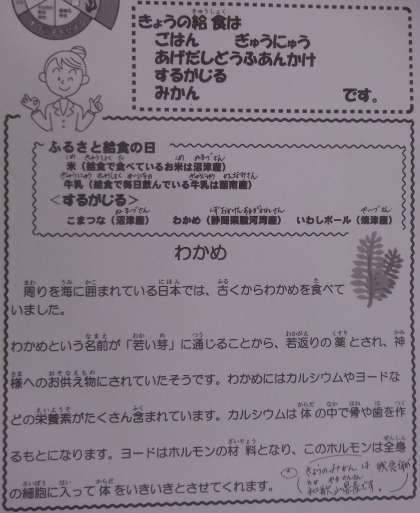 きょうの給食は
ごはん　ぎゅうにゅう
あげだしどうふあんかけ
するがじる
みかん　です。
ふるさと給食の日
米（給食で食べているお米は沼津産）
牛乳（給食で毎日飲んでいる牛乳は函南産）
＜するがじる＞
こまつな（沼津産）　わかめ（静岡県駿河湾産）　いわしボール（焼津産）
わかめ
周りを海に囲まれている日本では、古くからわかめを食べて
いました。
わかめという名前が「若い芽」に通じることから、若返りの薬とされ、神
様へのお供え物にされていたそうです。わかめにはカルシウムやヨードな
どの栄養素がたくさん含まれています。カルシウムは体の中で骨や歯を作
るもとになります。ヨードはホルモンの材料となり、このホルモンは全身
の細胞に入って体をいきいきとさせてくれます。
きょうのみかんは